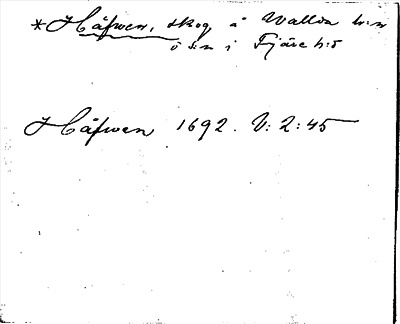 *Håfwen, skog å Wallda
i Fjäre h:d
Håfwen 1692. V: 2: 45